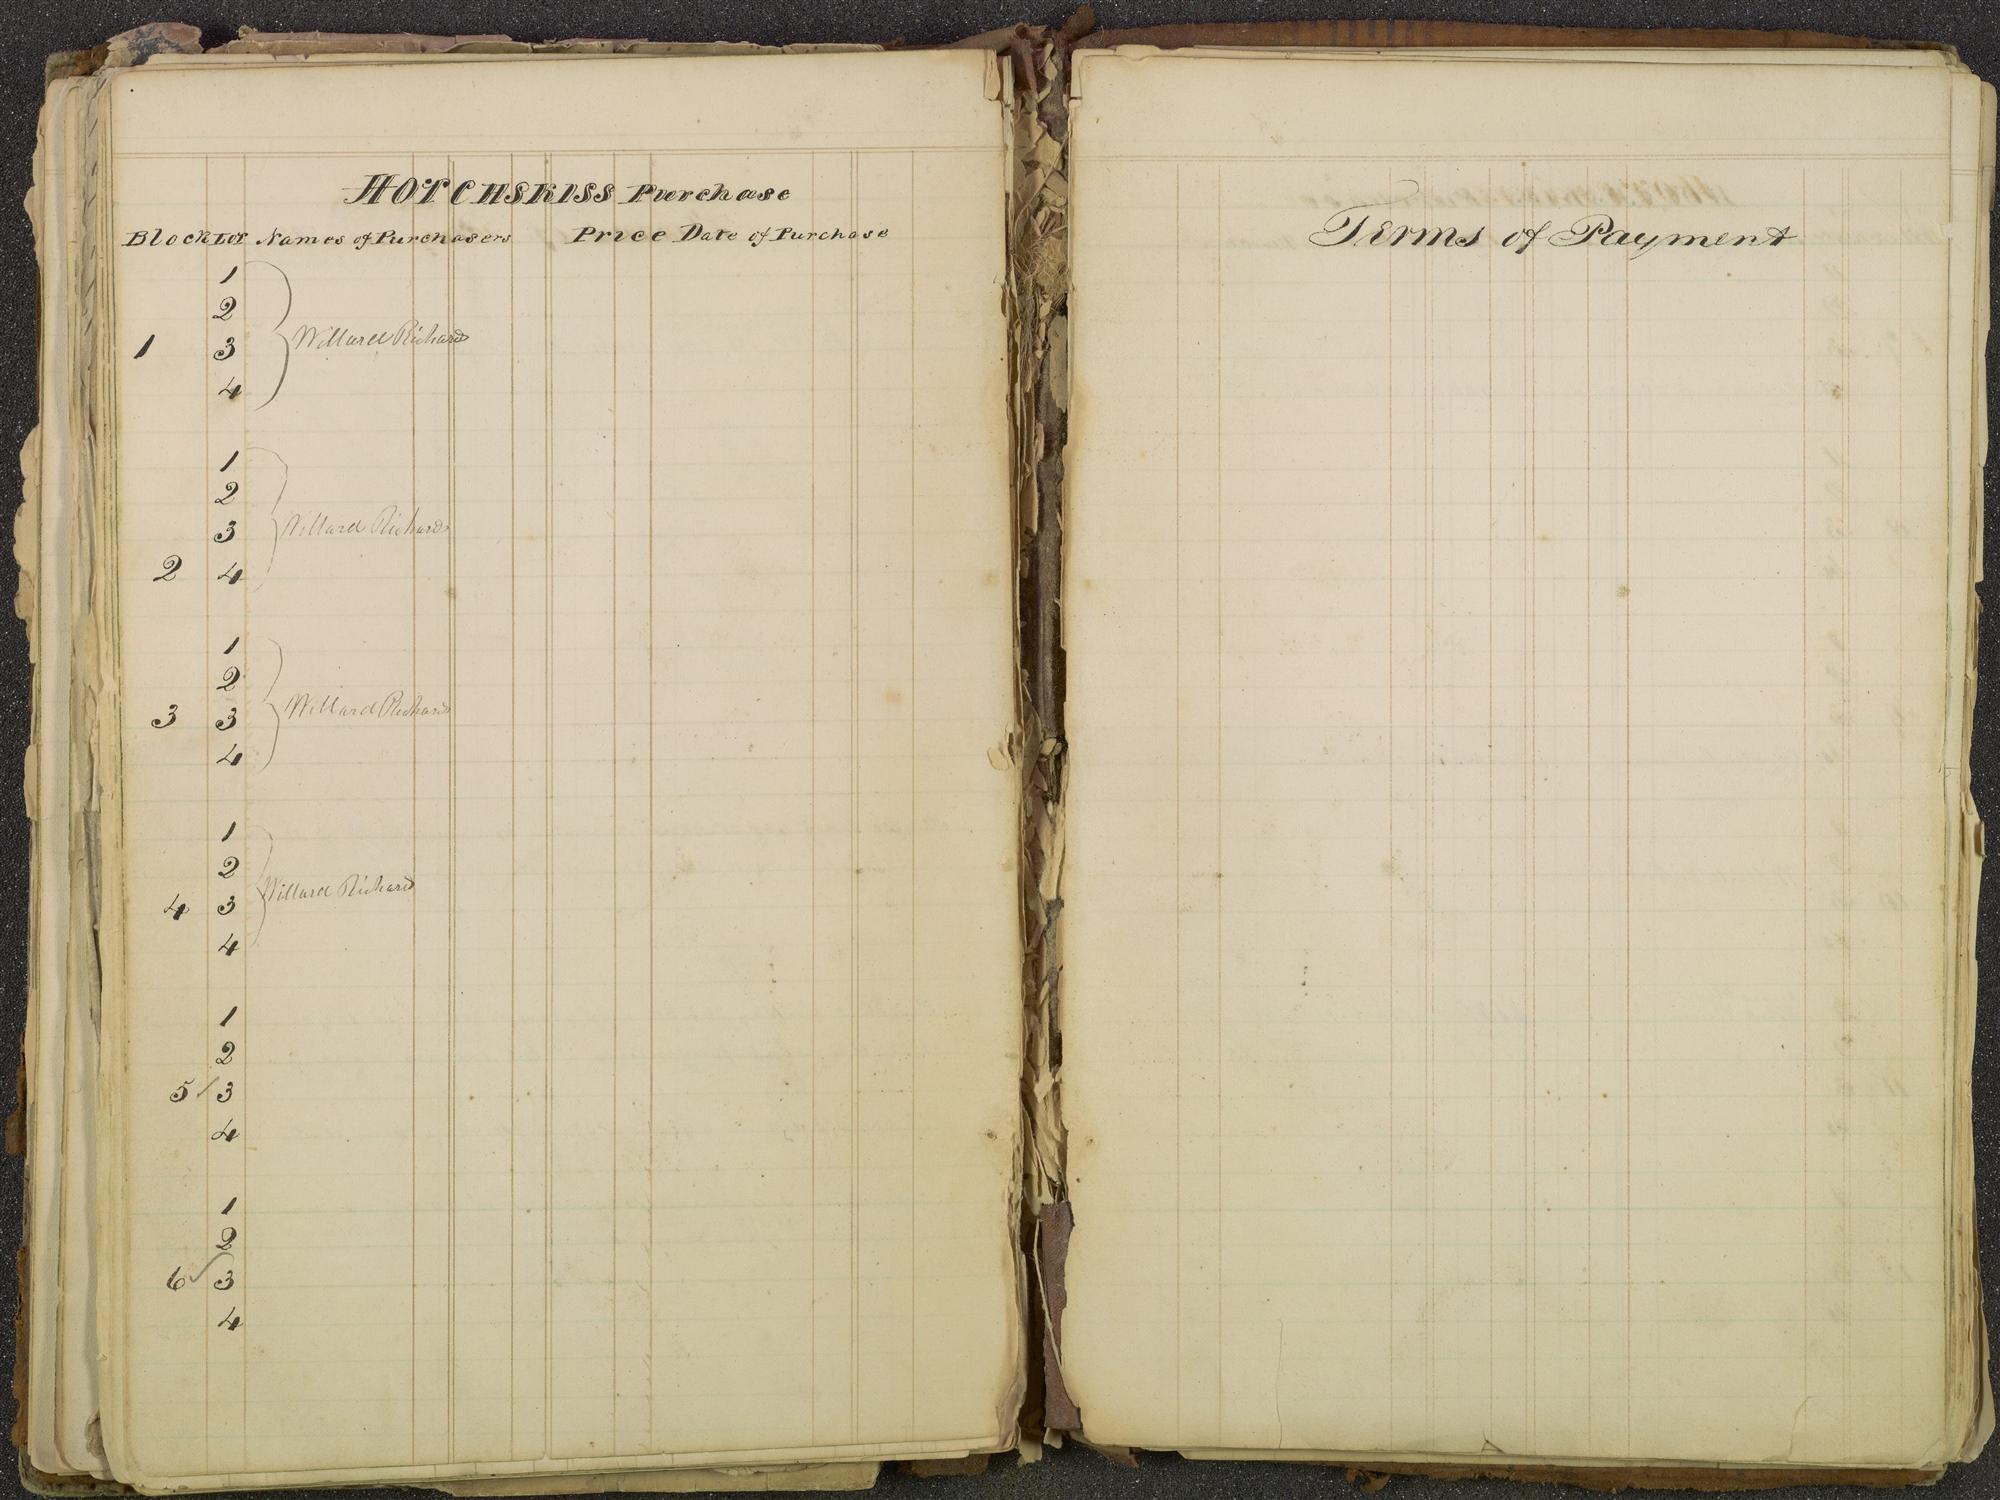 HOTCHSKISS Purchase
Block Lot Names of Purchasers Price Date of Purchase
1
2
1 3 Willard Richard
4
1
2
3 Willard Richard
2 4
1
2
3 3 Willard Richard
4
1
2
4 3 Willard Richard
4
1
2
5 ✓ 3
4
1
2
6 ✓ 3
4
Terms of Payment